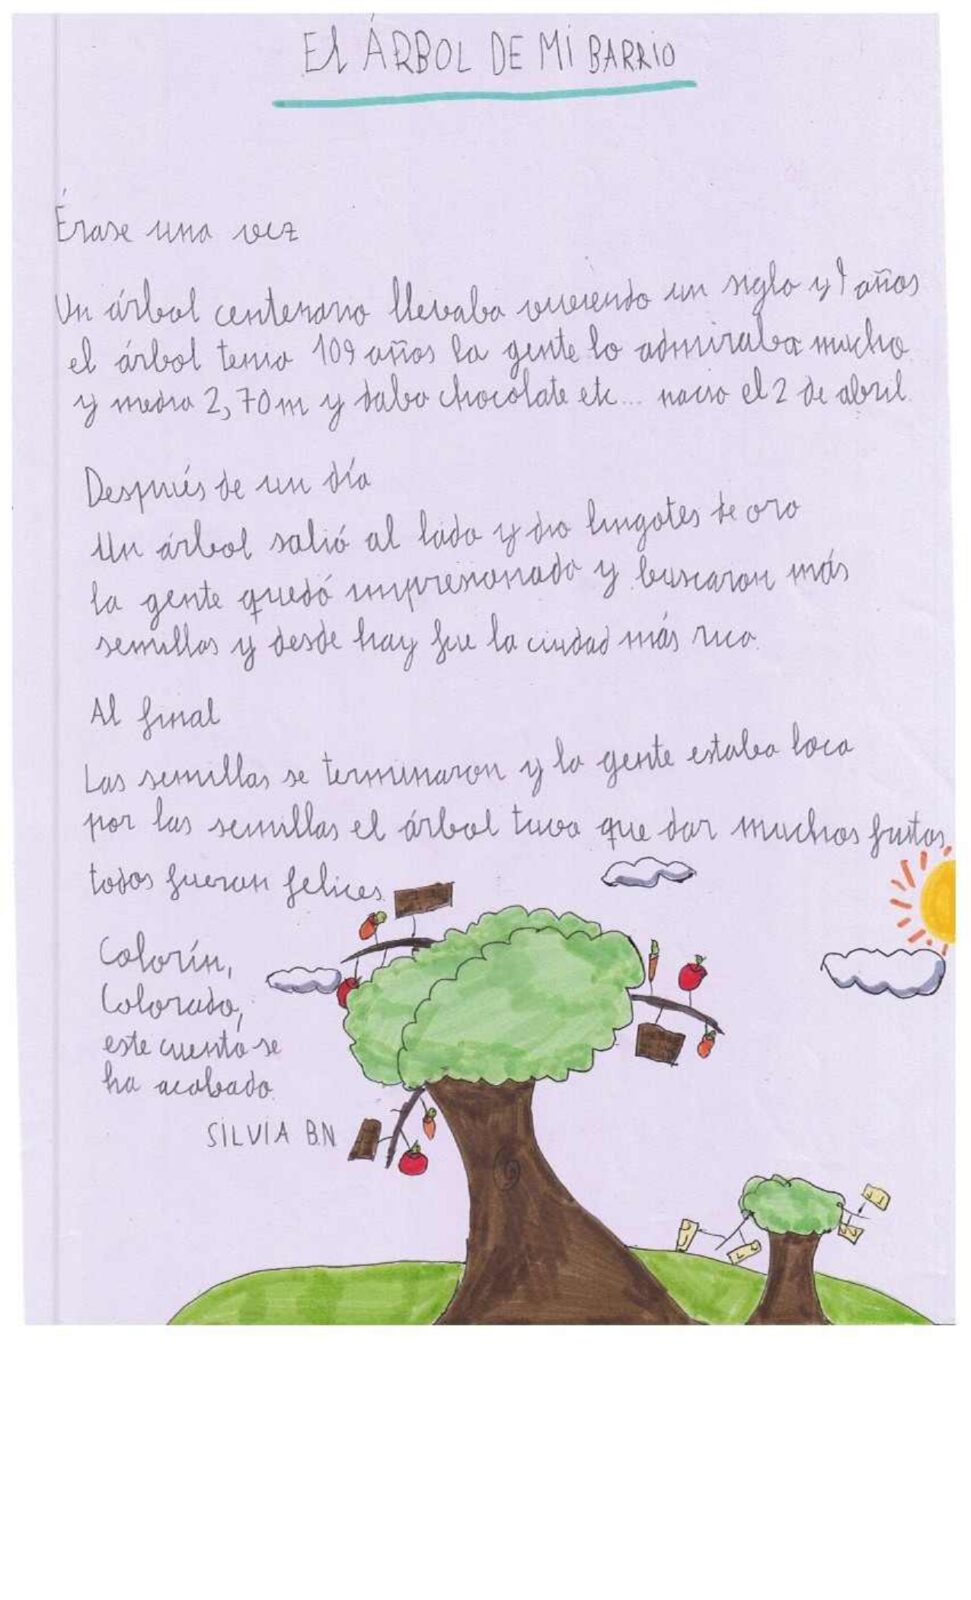 El ÁRBOL DE MI BARRIO
Érase una vez
Un árbol centenario llevaba viviendo un siglo y 9 años
el árbol tenia 109 años la gente lo admiraba mucho
y media 2,70m y daba chocolate etc... nacio el 2 de abril.
Después de un día
Un árbol salió al lado y dio lingotes de oro
la gente quedó impresionada y buscaron más
semillas y desde hay fue la ciudad más rica.
Al final
Las semillas se terminaron y la gente estaba loca
por las semillas el árbol tuvo que dar muchos frutos
todos fueron felices
Colorín,
Colorado,
este cuento se
ha acabado.
SILVIA B.N